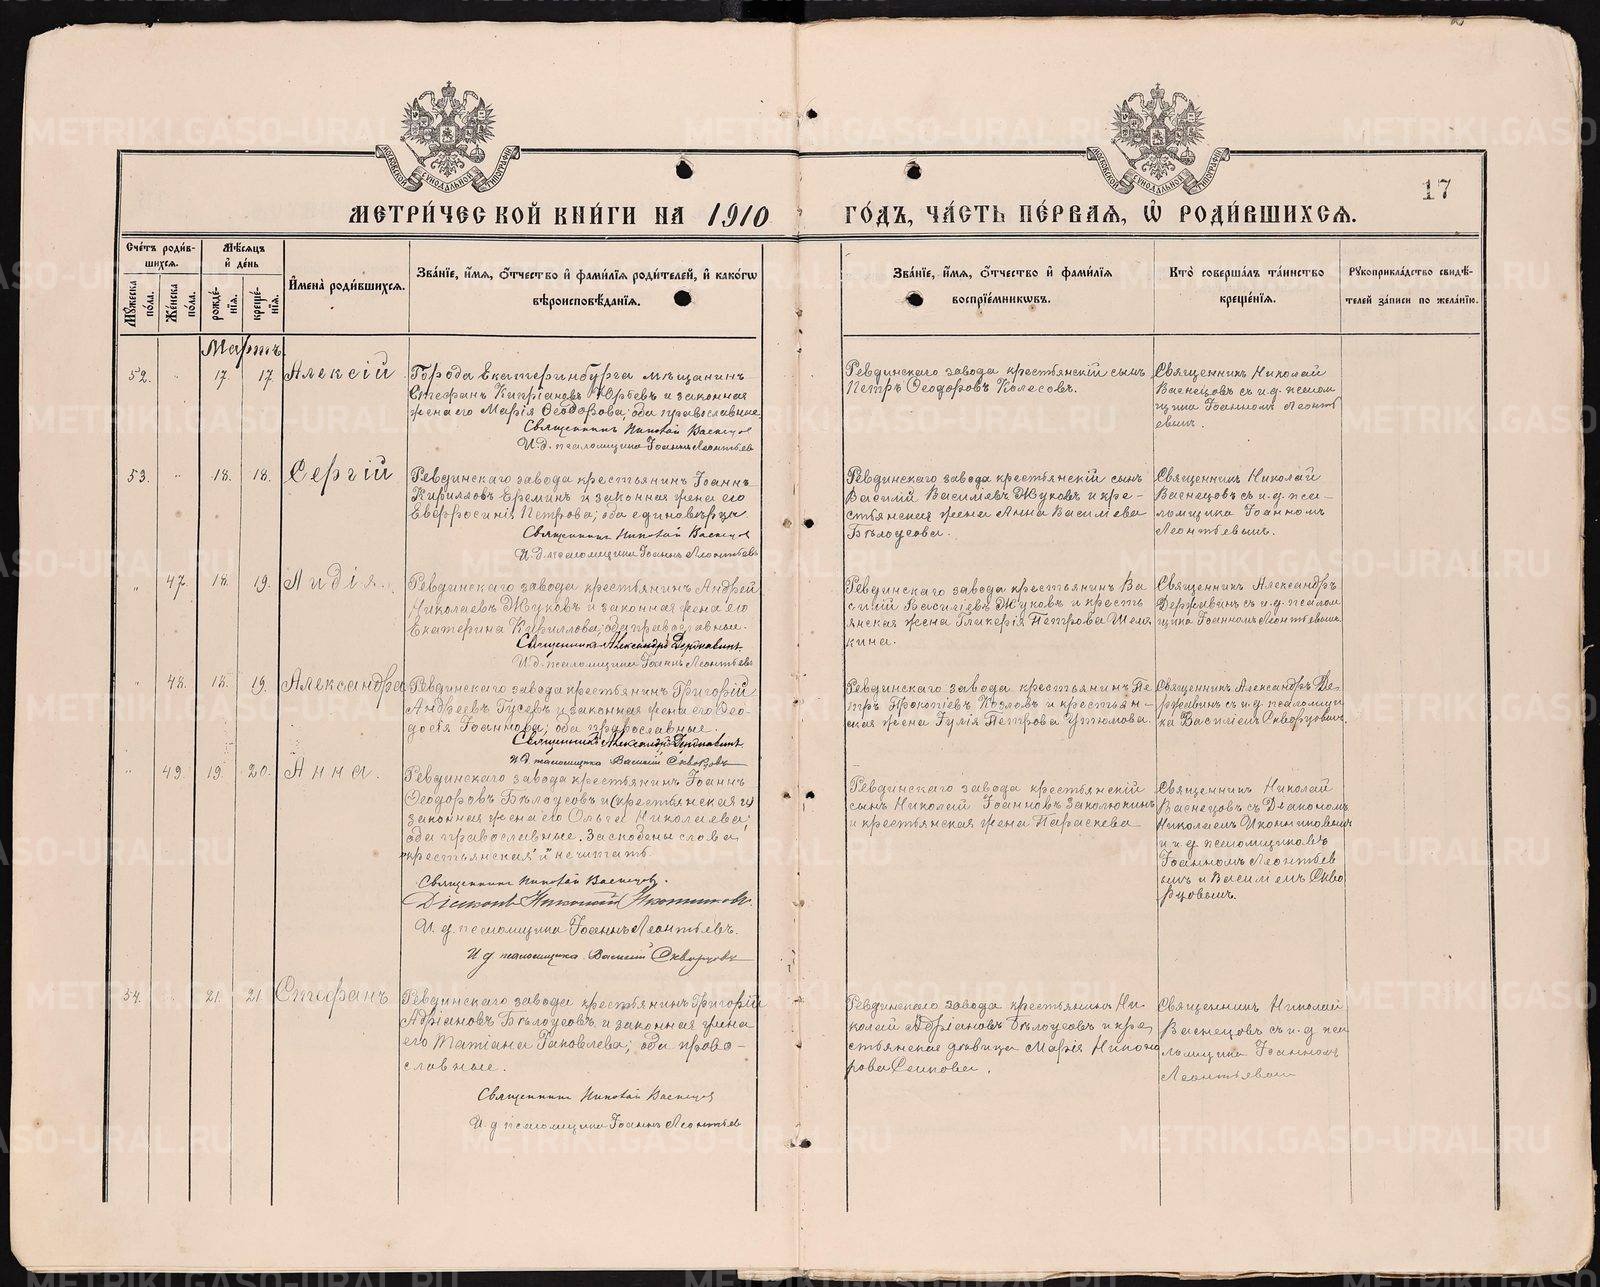 МЕТРИ́ЧЕСКОЙ КНИ́ГИ НА 1910 ГО́ДЪ, ЧА́СТЬ ПЕ́РВАЯ, Ѡ҆ РОДИ́ВШИХСЯ.
17
Сче́тъ роди́в-
шихся.
Му́жеска
по́ла.
Же́нска
по́ла.
Мѣ́сяцъ
и҆ де́нь
рожде́-
нїя.
креще́-
нїя.
И҆мена̀ роди́вшихся.
Зва́нїе, и҆́мя, ѻ҆́тчество и҆ фами́лїя роди́телей, и҆ како́гѡ
вѣроисповѣ́данїя.
Зва́нїе, и҆́мя, ѻ҆́тчество и҆ фами́лїя
воспрїе́мниковъ.
Кто̀ соверша́лъ та́инство
креще́нїя.
Рукоприкла́дство свидѣ́-
телей за́писи по жела́нїю.
Мартъ.
52. " 17. 17. Алексій
Города Екатеринбурга мѣщанинъ
Стефанъ Кипріановъ Юрьевъ и законная
жена его Марія Ѳеодорова; оба православные.
Священникъ Николай Васнецов
И. д. псаломщика Іоаннъ Леонтьев
Ревдинскаго завода крестьянскій сынъ
Петръ Ѳеодоровъ Колесовъ.
Священникъ Николай
Васнецовъ съ и. д. псалом
щика Іоанномъ Леонтѣ
евымъ.
53. " 18. 18. Сергій
Ревдинскаго завода крестьянинъ Іоаннъ
Кирилловъ Ереминъ и законная жена его
Евфросинія Петрова; оба единовѣрцы.
Священникъ Николай Васнецов
И. д. псаломщика Іоаннъ Леонтьевъ
Ревдинскаго завода крестьянскій сынъ
Василій Василіевъ Жуковъ и кре-
стьянская жена Анна Василіева
Бѣлоусова.
Священникъ Николай
Васнецовъ съ и. д. пса-
ломщика Іоанномъ
Леонтьевымъ.
" 47 18. 19. Лидія.
Ревдинскаго завода крестьянинъ Андрей
Николаевъ Жуковъ и законная жена его
Екатерина Кириллова; оба православные.
Священникъ Александръ Державинъ
И. д. псаломщика Іоаннъ Леонтьевъ
Ревдинскаго завода крестьянинъ Ва
силій Василіевъ Жуковъ и кресть
янская жена Гликерія Петрова Шемя
кина.
Священникъ Александръ
Державинъ съ и. д. псалом
щика Іоанномъ Леонтьевымъ.
" 48. 18. 19. Александра
Ревдинскаго завода крестьянинъ Григорій
Андреевъ Гусевъ и законная жена его Ѳео-
досія Іоаннова; оба православные.
Священникъ Александръ Державинъ
И. д. псаломщика Василій Скворцовъ
Ревдинскаго завода крестьянинъ Пе
тръ Прокопіевъ Козловъ и крестьян-
ская жена Іулія Петрова Утюмова.
Священникъ Александръ Де-
ржавинъ съ и. д. псаломщи
ка Василіемъ Скворцовымъ.
" 49. 19. 20. Анна.
Ревдинскаго завода крестьянинъ Іоаннъ
Ѳеодоровъ Бѣлоусовъ и (крестьянская и)
законная жена его Ольга Николаева;
оба православные. Заскобены слова
"крестьянская и" не читать.
Священникъ Николай Васнецов.
Діаконъ Николай Иконников.
И. д. псаломщика Іоаннъ Леонтьевъ.
И д псаломщика Василій Скворцовъ
Ревдинскаго завода крестьянскій
сынъ Николай Іоанновъ Заколюкинъ
и крестьянская жена Параскева
Священникъ Николай
Васнецовъ съ Діакономъ
Николаемъ Иконниковымъ
и и. д. псаломщиковъ
Іоанномъ Леонтьев
ымъ и Василіемъ Скво
рцовымъ.
54. " 21. 21. Стефанъ
Ревдинскаго завода крестьянинъ Григорій
Адріановъ Бѣлоусовъ и законная жена
его Татіана Іаковлева; оба право-
славные.
Священникъ Николай Васнецов
И. д псаломщика Іоаннъ Леонтьев
Ревдинскаго завода крестьянинъ Ни-
колай Адріановъ Бѣлоусовъ и кре
стьянская дѣвица Марія Никано
рова
Священникъ Николай
Васнецовъ съ и. д пса
ломщика Іоанномъ
Леонтьевым